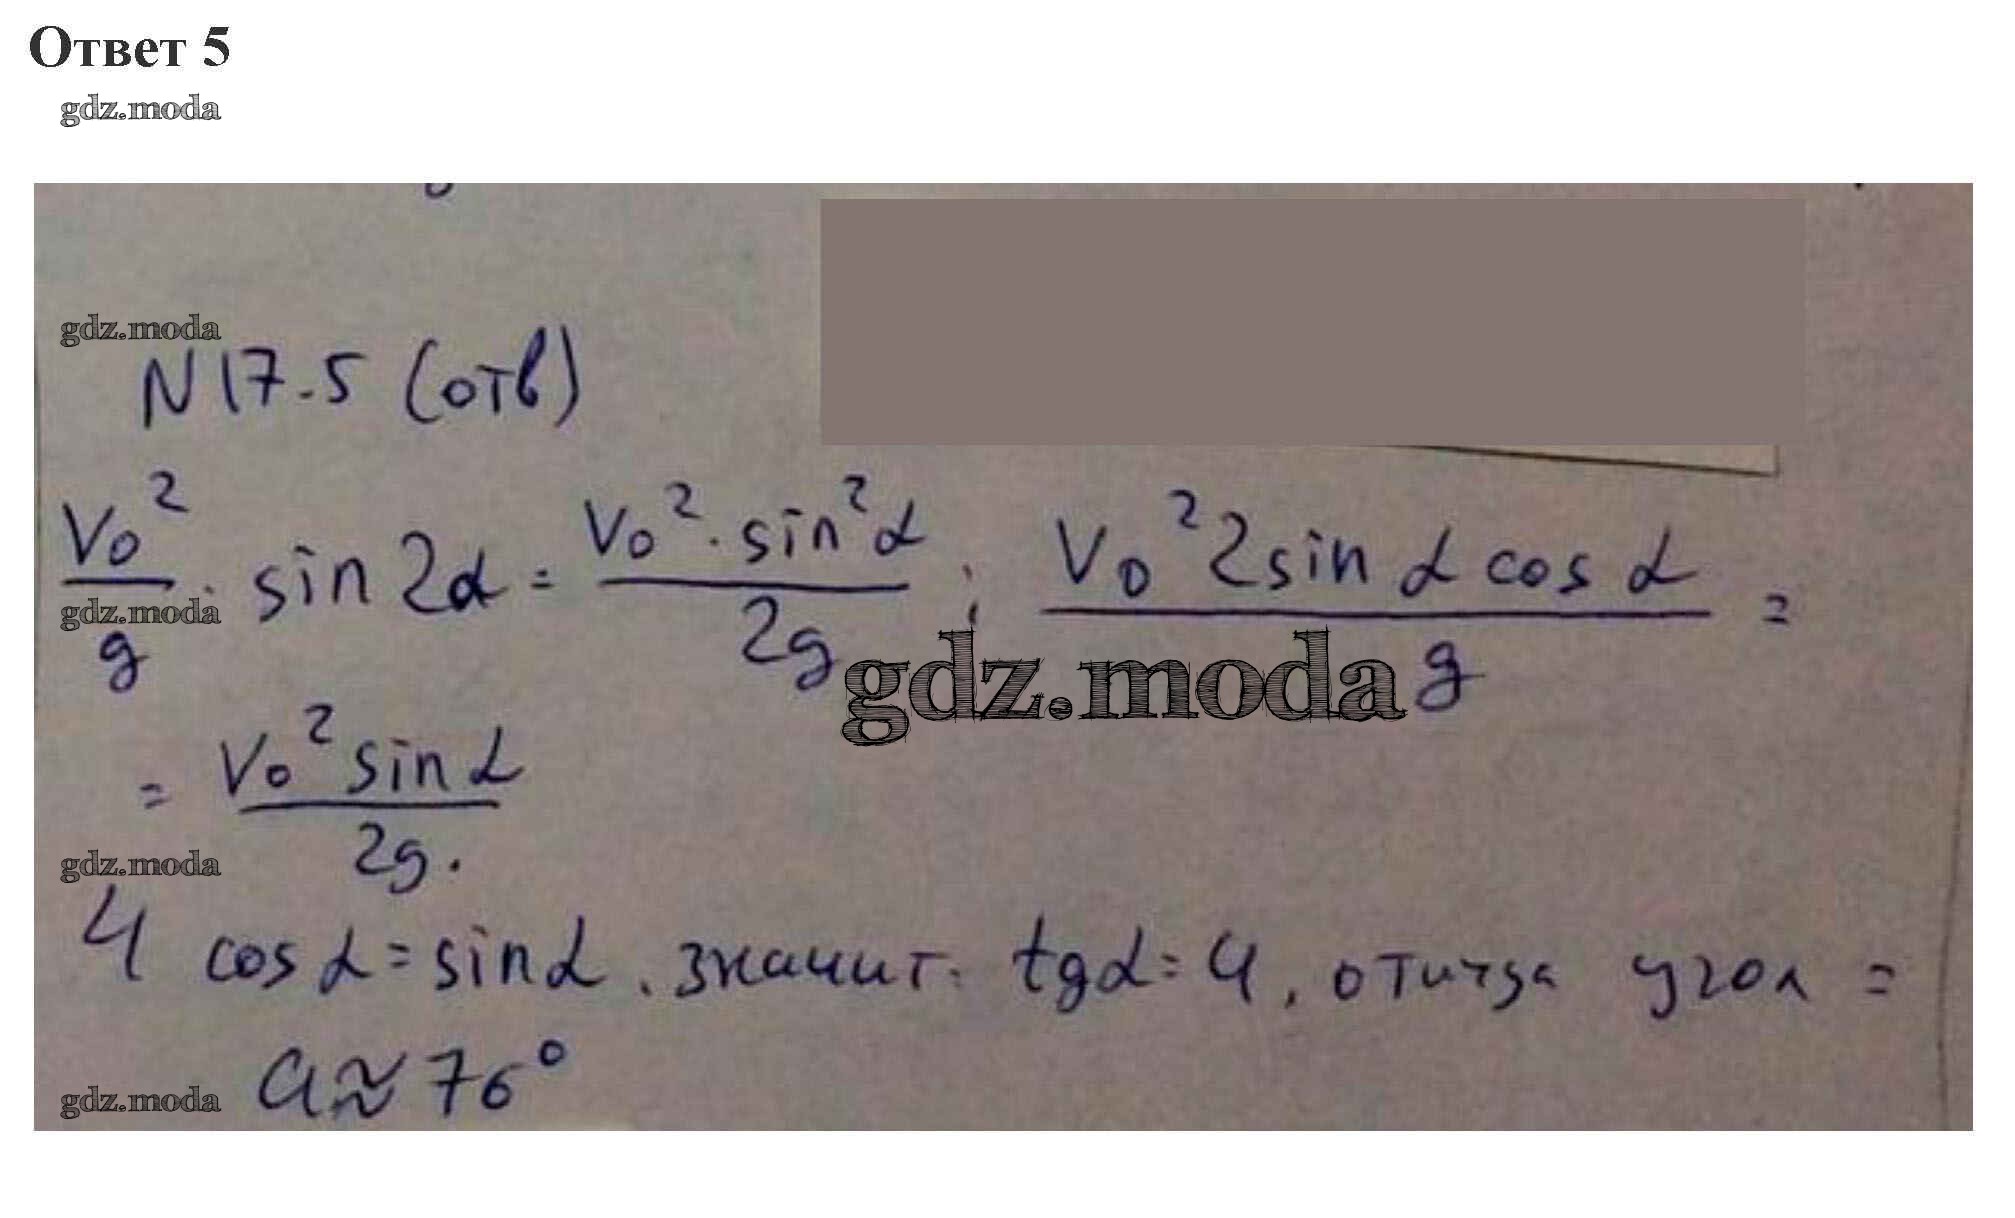 Ответ 5
gdz.moda
gdz.moda
N17.5 (отв)
V₀²/g · sin 2α = V₀² · sin²α / 2g ; V₀² 2 sin α cos α / g =
gdz.moda
gdz.moda
= V₀² sin α / 2g.
gdz.moda
4 cos α = sin α. значит. tg α = 4, отчгда угол =
gdz.moda
a ≈ 76°